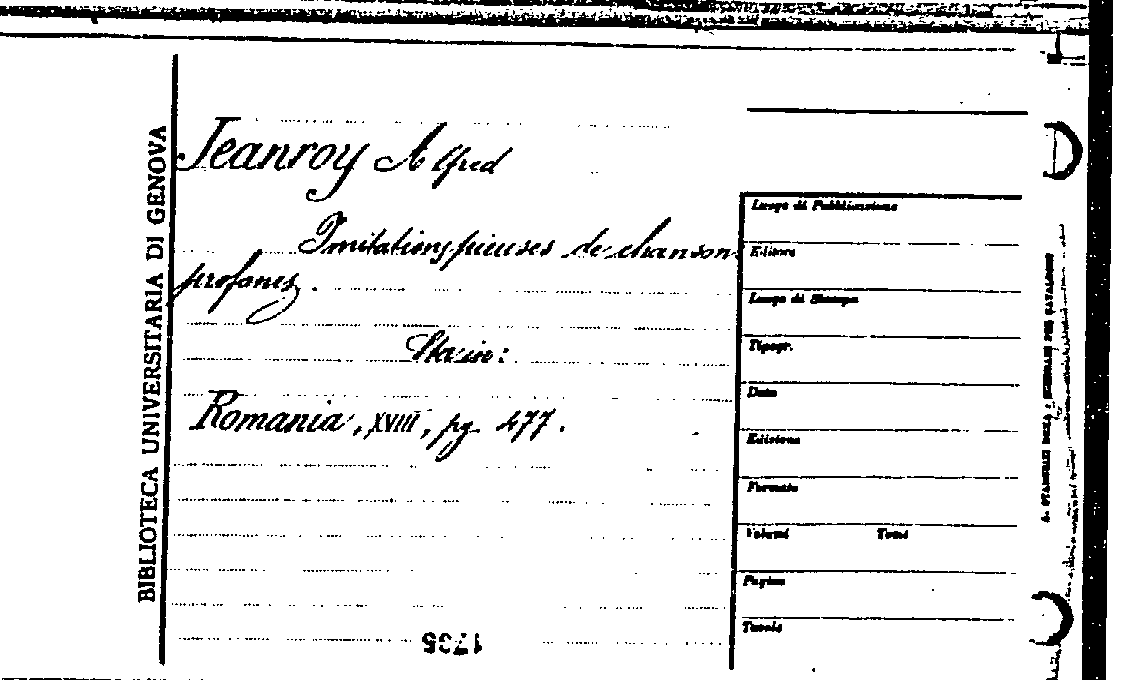 BIBLIOTECA UNIVERSITARIA DI GENOVA
Jeanroy Alfred
Imitations pieuses de chansons
profanes.
Sta in:
Romania, XVIII, pg. 477.
1735
Luogo di Pubblicazione
Editore
Luogo di Stampa
Tipogr.
Data
Edizione
Formato
Volumi Tomi
Pagine
Tavole